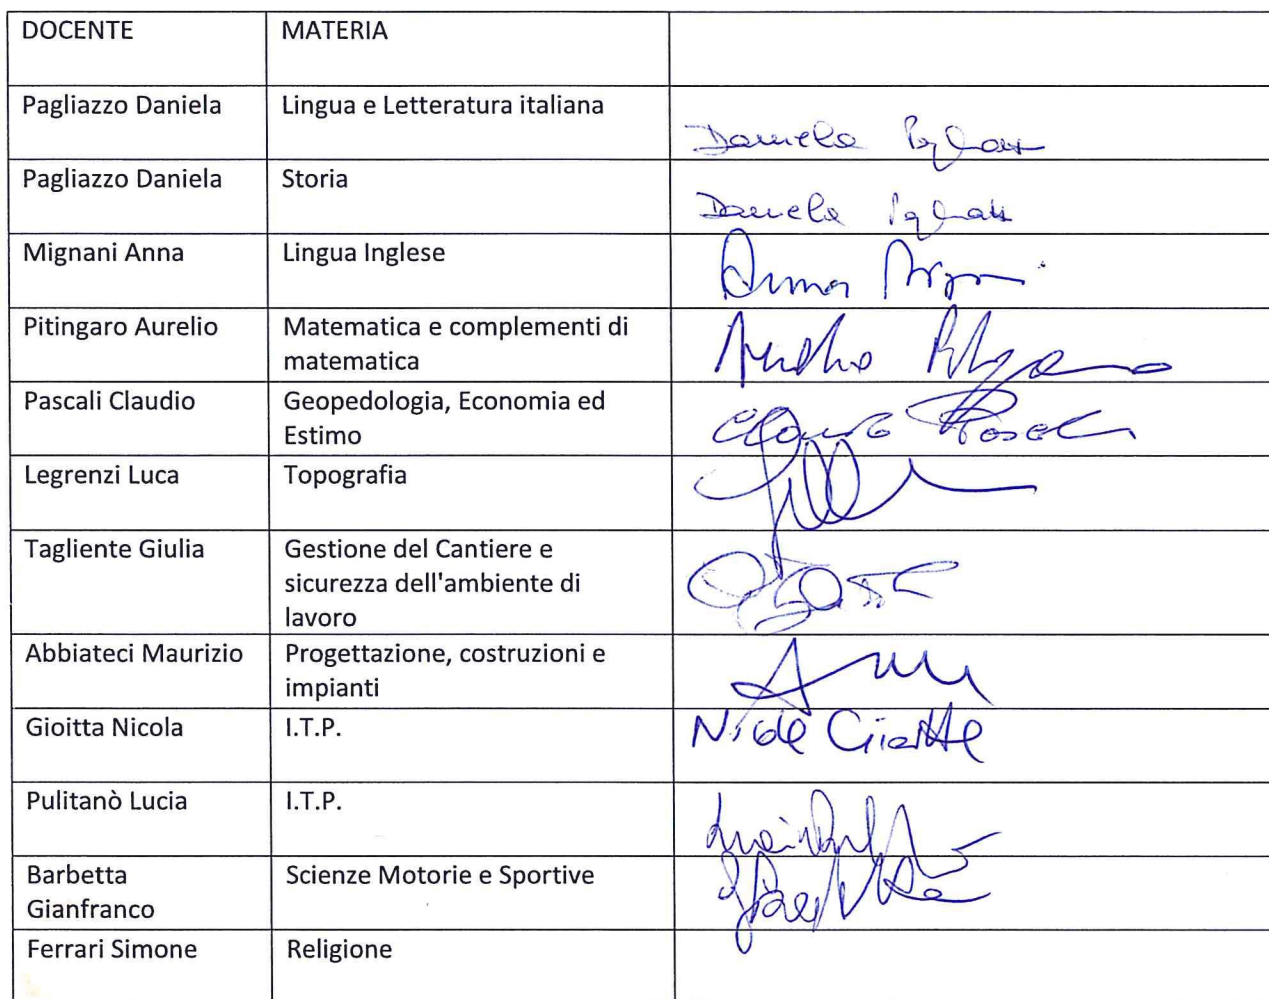 DOCENTE MATERIA
Pagliazzo Daniela Lingua e Letteratura italiana
Daniela
Pagliazzo Daniela Storia
Daniela
Mignani Anna Lingua Inglese
Anna
Pitingaro Aurelio Matematica e complementi di
matematica
Pascali Claudio Geopedologia, Economia ed
Estimo
Legrenzi Luca Topografia
Tagliente Giulia Gestione del Cantiere e
sicurezza dell'ambiente di
lavoro
Abbiateci Maurizio Progettazione, costruzioni e
impianti
Gioitta Nicola I.T.P.
Pulitanò Lucia I.T.P.
Barbetta Scienze Motorie e Sportive
Gianfranco
Ferrari Simone Religione